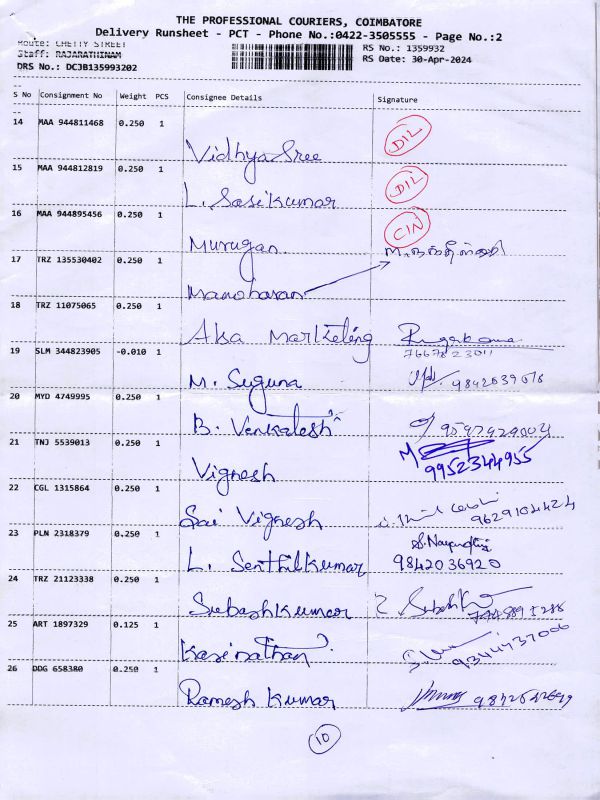 THE PROFESSIONAL COURIERS, COIMBATORE
Delivery Runsheet - PCT - Phone No.:0422-3505555 - Page No.:2
Route: CHETTY STREET
Staff: RAJARATHINAM
DRS No.: DCJB135993202
RS No.: 1359932
RS Date: 30-Apr-2024
S No Consignment No Weight PCS Consignee Details Signature
14 MAA 944811468 0.250 1
Vidhya Sree D/L
15 MAA 944812819 0.250 1
L. Sasikumar D/L
16 MAA 944895456 0.250 1
Murugan C/N
17 TRZ 135530402 0.250 1
Manoharan
18 TRZ 11075065 0.250 1
Aksa Marketing
7667823011
19 SLM 344823905 -0.010 1
M. Suguna 9842039076
20 MYD 4749995 0.250 1
B. Venkatesh 9597929004
21 TNJ 5539013 0.250 1
Vignesh 9952344955
22 CGL 1315864 0.250 1
Sai Vignesh 9629104424
23 PLN 2318379 0.250 1
L. Senthilkumar 9842036920
24 TRZ 21123338 0.250 1
Subash Kumar
25 ART 1897329 0.125 1
Kasinathan 9344437006
26 DDG 658380 0.250 1
Ramesh Kumar
10